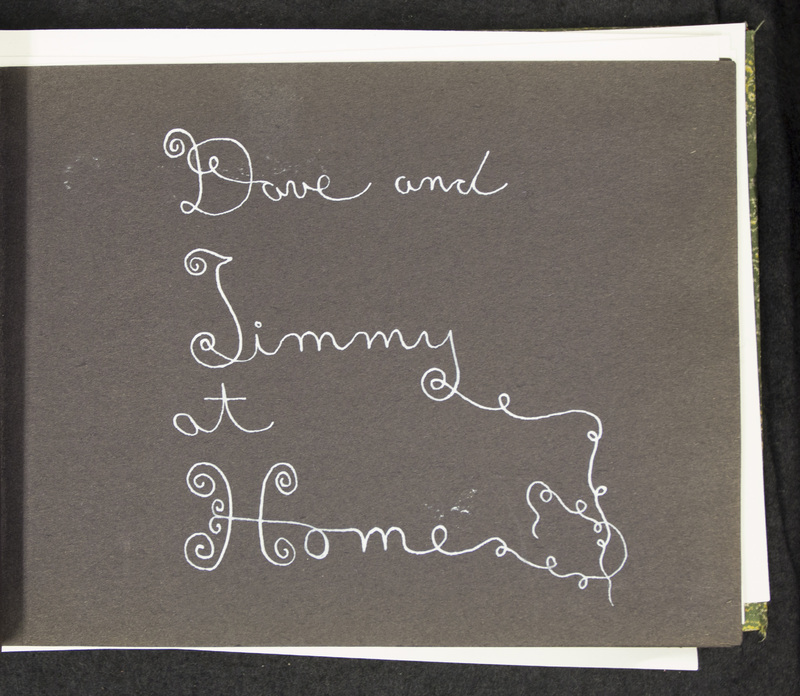 Dave and
Jimmy
at
Home